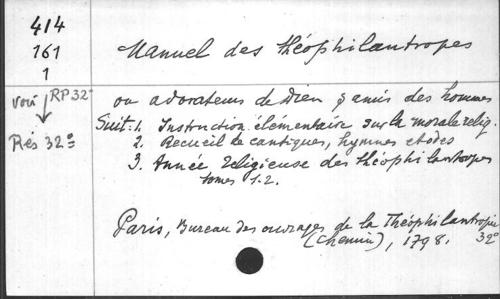 414
161
1
voir RP 32°
Rés 32°
Manuel des théophilantropes
ou adorateurs de Dieu & amis des hommes
Suit: 1. Instruction élémentaire sur la morale relig.
2. Recueil de cantiques, hymnes et odes
3. Année religieuse des théophilantropes
tomes 1.2.
Paris, Bureau des ouvrages de la Théophilantropie
(Chemin), 1798. 32°